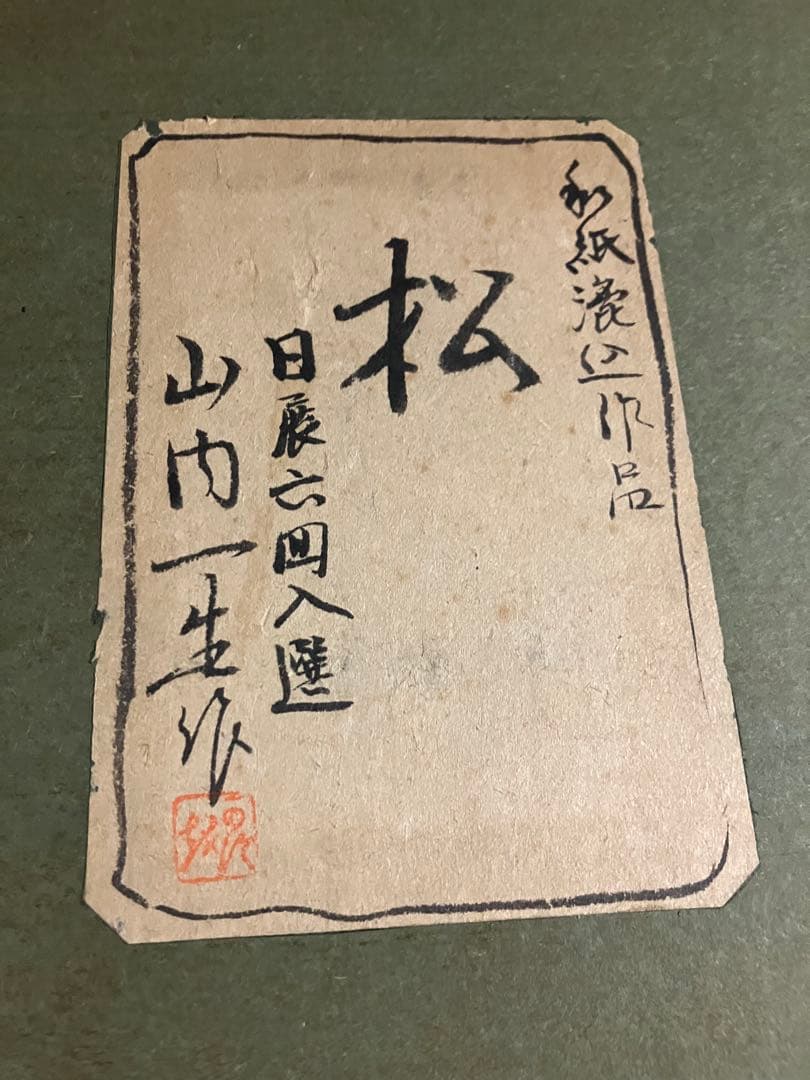 和紙漉込作品
松
日展六回入選
山内一生作